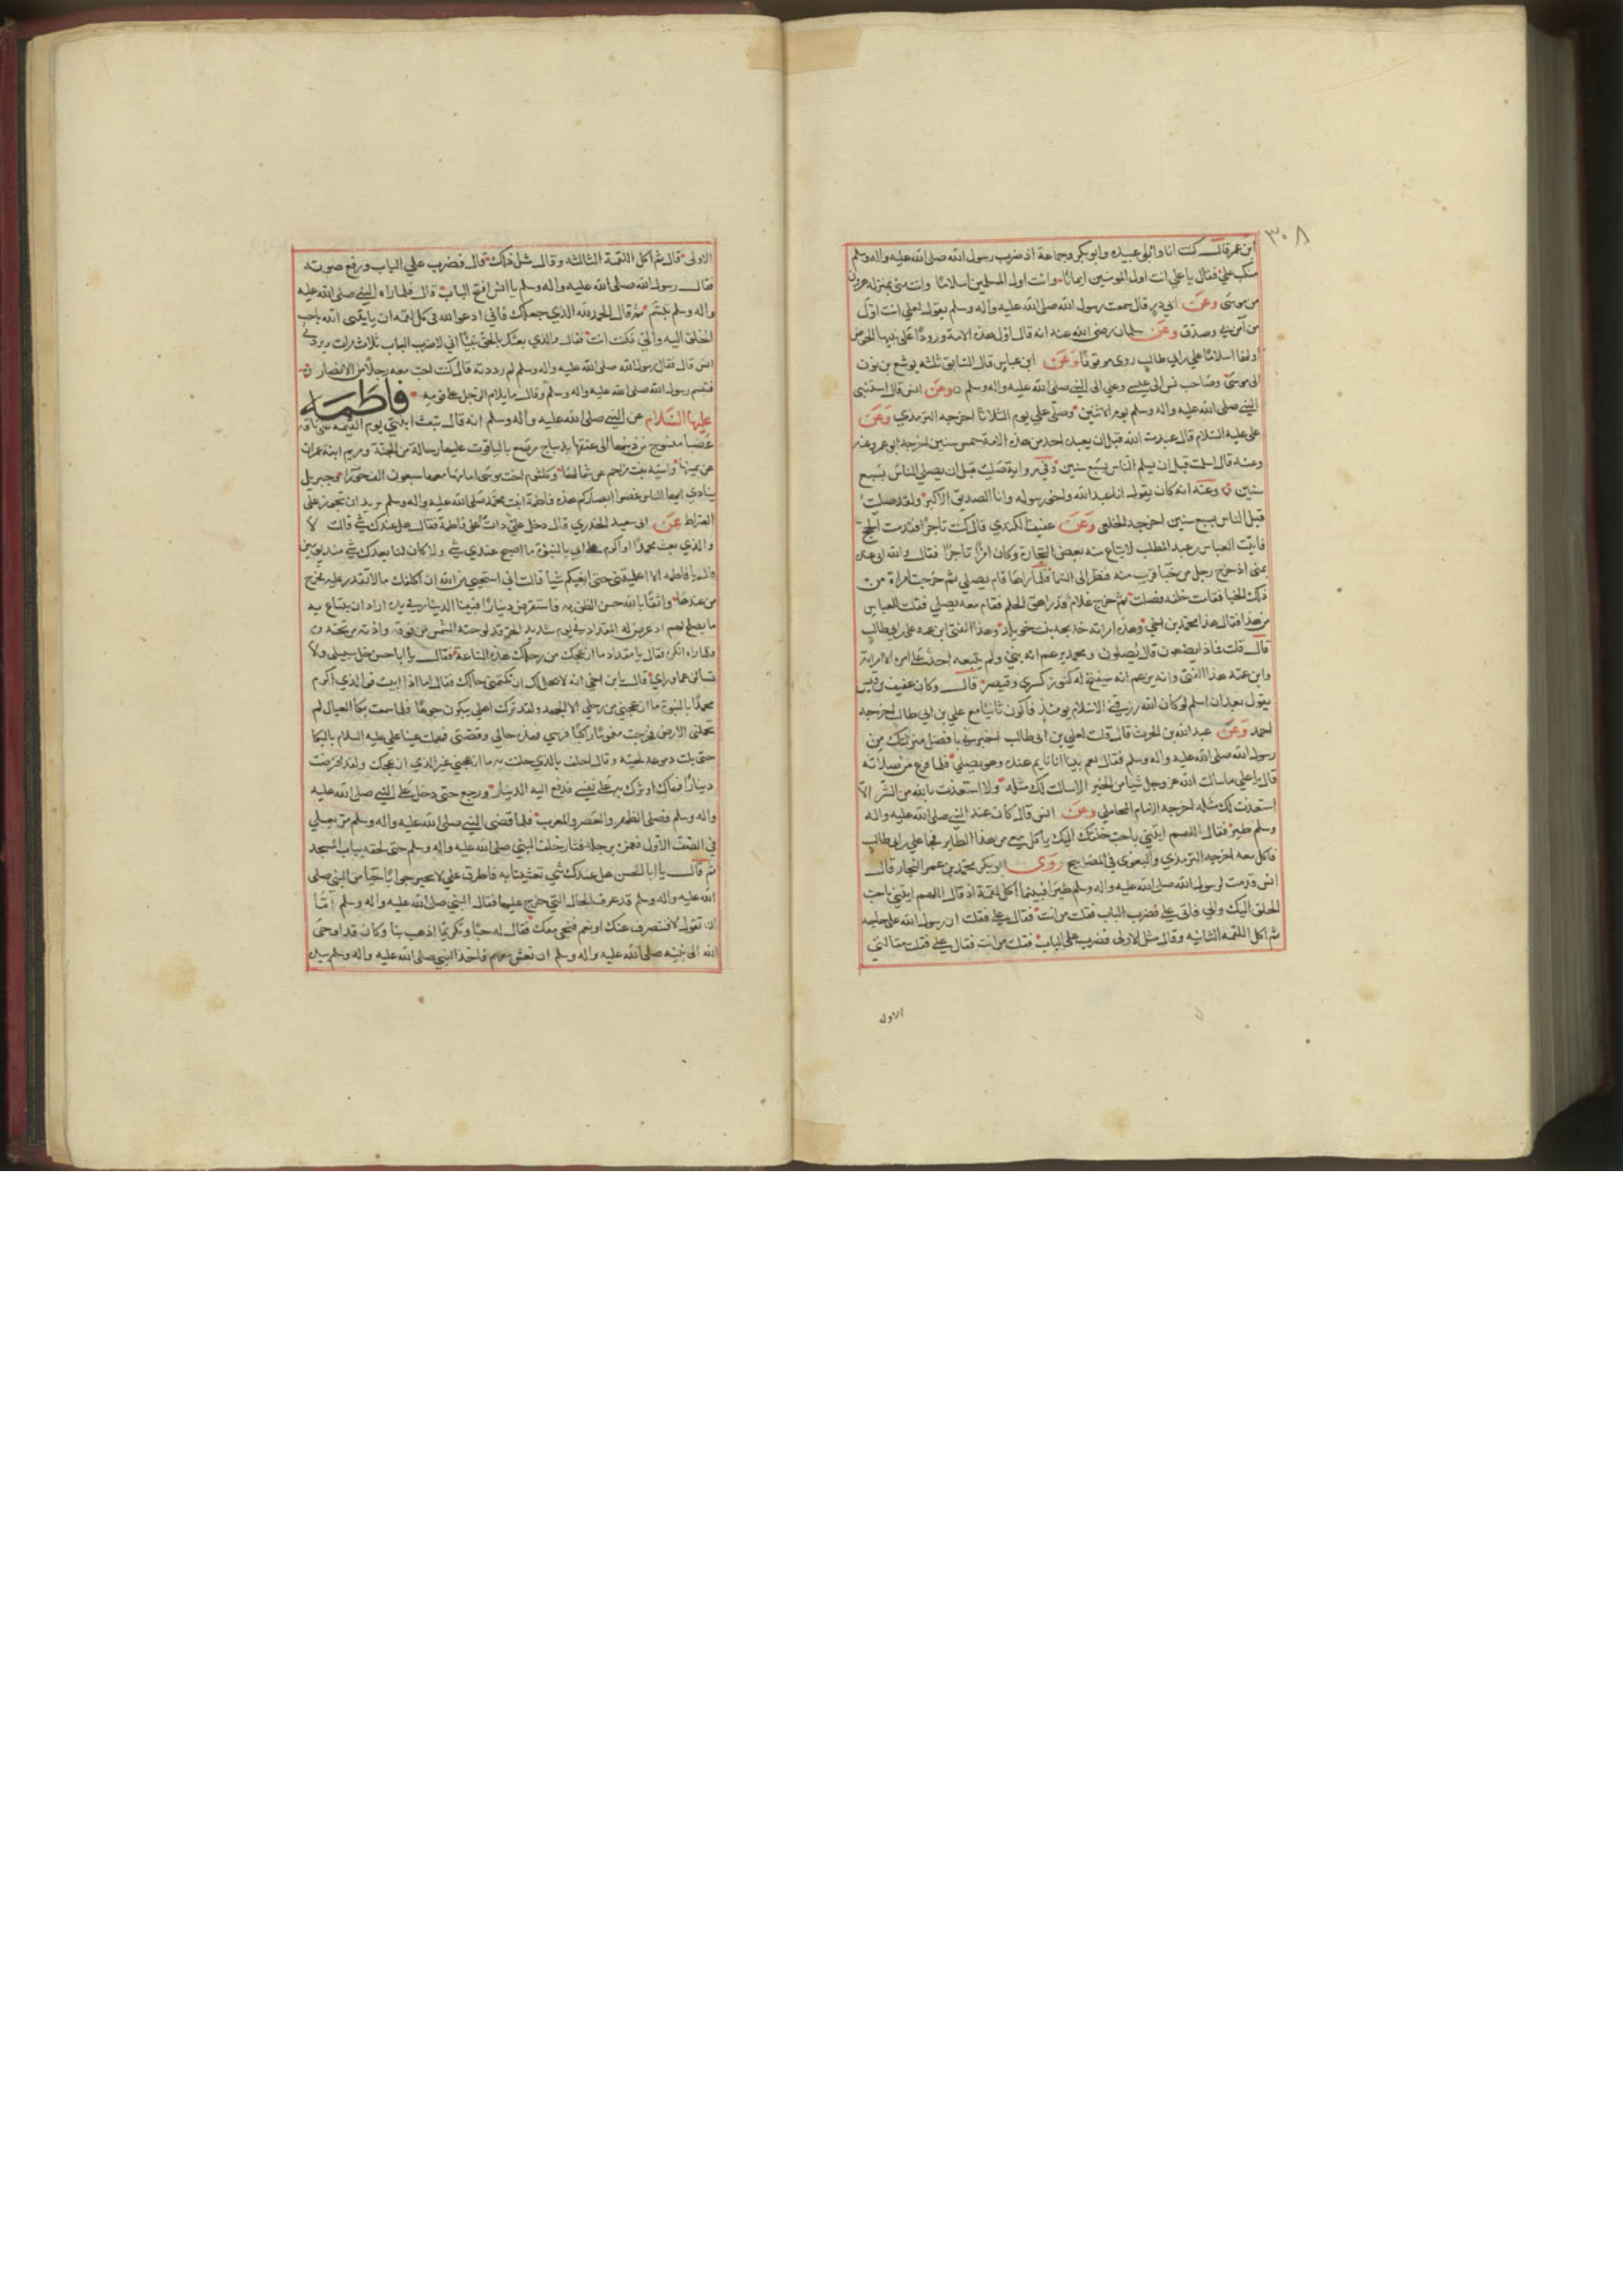 ٣٠٨
ابن عمر قال كنت انا وابو عبيده وابو بكر وجماعة اذ ضرب رسول الله صلى الله عليه واله وسلم
منكب علي فقال يا علي انت اول المومنين ايمانا وانت اول المسلمين اسلامًا وانت مني بمنزله هرون
من موسى وعن ابي ذر قال سمعت رسول الله صلى الله عليه واله وسلم يقول لعلي انت اول
من آمن بي وصدق وعن سلمان رضي الله عنه انه قال اول هذه الامة ورودًا على نبيها الحوض
اولها اسلامًا علي بن ابي طالب روى موقوفا وعن ابن عباس قال السابق ثلثه يوشع بن نون
الى موسى وصاحب يس الى عيسى وعلي الى النبي صلى الله عليه واله وسلم وعن انس قال استنبى
النبي صلى الله عليه واله وسلم يوم الاثنين وصلى علي يوم الثلاثا اخرجه الترمذي وعن
علي عليه السلام قال عبدت الله قبل ان يعبده احد من هذه الامة خمس سنين اخرجه ابو عمر وعنه
وعنه قال اسلمت قبل ان يسلم الناس بسبع سنين وفي رواية صليت قبل ان يصلي الناس بسبع
سنين وعنه انه كان يقول انا عبد الله واخي رسوله وانا الصديق الاكبر ولقد صليت
قبل الناس بسبع سنين اخرجه الخلعي وعن عفيف الكندي قال كنت تاجرًا فقدمت الحج
فاتيت العباس بن عبد المطلب لابتاع منه بعض التجارة وكان امرًا تاجرًا فقال فوالله اني عنده
بمنى اذ خرج رجل من خبا قريب منه فنظر الى السما فلما راها قام يصلي ثم خرجت امراة من
ذلك الخبا فقامت خلفه فصلت ثم خرج غلام قد راهق الحلم فقام معه يصلي فقلت للعباس
من هذا فقال هذا محمد بن اخي وهذه امراته خديجه بنت خويلد وهذا الفتى ابن عمه علي بن ابي طالب
قال قلت فماذا يصنعون قال يصلون ومحمد يزعم انه نبي ولم يتبعه احد على امره الا امراته
وابن عمه هذا الفتى وانه يزعم انه سيفتح له كنوز كسرى وقيصر قال وكان عفيف بن قيس
يقول بعد ان اسلم لو كان الله رزقني الاسلام يومئذ فاكون ثانيا مع علي بن ابي طالب اخرجه
احمد وعن عبد الله بن الحرث قال قلت لعلي بن ابي طالب اخبرني بافضل منزلتك من
رسول الله صلى الله عليه واله وسلم فقال نعم بينا انا نايم عنده وهو يصلي فلما فرغ من صلاته
قال يا علي ما سالت الله عز وجل شيا من الخير الا سالت لك مثله ولا استعذت بالله من الشر الا
استعذت لك مثله اخرجه الامام المحاملي وعن انس قال كان عند النبي صلى الله عليه واله
وسلم طير فقال اللهم ايتني باحب خلقك اليك ياكل معي من هذا الطاير فجا علي بن ابي طالب
فاكل معه اخرجه الترمذي والبغوي في المصابيح روى ابو بكر محمد بن عمر النجار قال
انس قدمت لرسول الله صلى الله عليه واله وسلم طيرا فبينما اكل لقمة اذ قال اللهم ايتني باحب
الخلق اليك والي فاتى علي فضرب الباب فقلت من انت فقال علي فقلت ان رسول الله على حاجه
ثم اكل اللقمه الثانيه وقال مثل الاولى فضرب علي الباب فقلت من انت فقال علي فقلت
الاوله
الاولى قال ثم اكل اللقمة الثالثه وقال مثل ذلك قال فضرب علي الباب ورفع صوته
فقال رسول الله صلى الله عليه واله وسلم يا انس افتح الباب قال فلما راه النبي صلى الله عليه
واله وسلم تبسم ثم قال الحمد لله الذي جعلك فاني ادعو الله في كل لقمه ان ياتيني الله باحب
الخلق اليه والي فكنت انت فقال والذي بعثك بالحق نبيًا اني لاضرب الباب ثلاث مرات ويردني
انس قال فقال رسول الله صلى الله عليه واله وسلم لم رددته قال كنت احب معه رجلًا من الانصار
فتبسم رسول الله صلى الله عليه واله وسلم وقال ما يلام الرجل على قومه فاطمه
عليها السلام عن النبي صلى الله عليه واله وسلم انه قال تبعث ابنتي يوم القيمه على ناقه
بالياقوت من الجنة ومريم ابنة عمران
عن يمينها واسيه بنت مزاحم عن شمالها وكلثوم اخت موسى امامها معها سبعون الف حورا وجبريل
ينادي ايها الناس غضوا ابصاركم هذه فاطمة ابنت محمد صلى الله عليه واله وسلم تريد ان تجوز على
الصراط عن ابي سعيد الخدري قال دخل علي ذات على فاطمة فقال هل عندك شي قالت لا
والذي بعث محمدًا او اكرم ابي بالنبوة ما اصبح عندي شي ولا كان لنا بعدك شي منذ يومين
قال يا فاطمه الا اعلمتني حتى ابغيكم شيا قالت اني استحيي من الله ان اكلفك ما لا تقدر عليه فخرج
من عندها واثقا بالله حسن الظن به فاستقرض دينارًا فبينا الدينار في يده اراد ان يبتاع به
ما يصلح لهم اذ عرض له المقداد في يوم شديد الحر قد لوحته الشمس من فوقه واذته من تحته
فلما راه انكره فقال يا مقداد ما ازعجك من رحلك هذه الساعة فقال يا ابا حسن خل سبيلي ولا
تسالني عما وراي قال يا ابن اخي انه لا يحل لك ان تكتمني حالك فقال اما اذا ابيت فوالذي اكرم
محمدًا بالنبوة ما ازعجني من رحلي الا الجهد ولقد تركت اهلي يبكون جوعًا فلما سمعت بكا العيال لم
تحملني الارض فخرجت مغمومًا راكبًا فهذه حالي وقصتي فهملت عينا علي عليه السلام بالبكا
حتى بلت دموعه لحيته وقال احلف بالذي حلفت به ما ازعجني غير الذي ازعجك ولقد اقترضت
دينارًا فهاك اوثرك به على نفسي فدفع اليه الدينار ورجع حتى دخل على النبي صلى الله عليه
واله وسلم فصلى الظهر والعصر والمغرب فلما قضى النبي صلى الله عليه واله وسلم مر بعلي
في الصف الاول فغمزه برجله فثار خلف النبي صلى الله عليه واله وسلم حتى لحقه بباب المسجد
ثم قال يا ابا الحسن هل عندك شي تعشينا به فاطرق علي لا يحير جوابًا حيا من النبي صلى
الله عليه واله وسلم قد عرف الحال التي خرج عليها فقال النبي صلى الله عليه واله وسلم اما
ان تقول لا فننصرف عنك او نعم فنجي معك فقال له حبًا وتكريمًا اذهب بنا وكان قد اوحى
الله الى نبيه صلى الله عليه واله وسلم ان تعش عندهم فاخذ النبي صلى الله عليه واله وسلم بيد